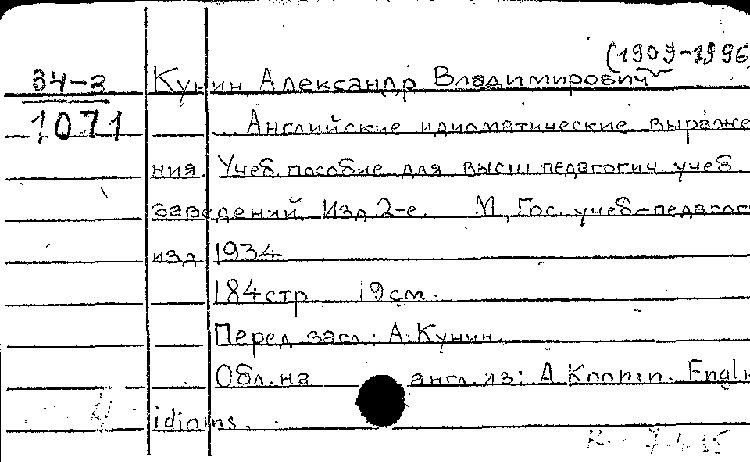 (1909-1996)
34-3 Кунин Александр Владимирович
1071 Английские идиоматические выраже
ния. Учеб. пособие для высш. педагогич. учеб.
заведений. Изд. 2-е. М., Гос. учеб-педагог.
изд. 1934
184 стр. 19 см.
Перед загл.: А. Кунин.
Обл. на англ. яз: A. Koonin. Engl
idioms.